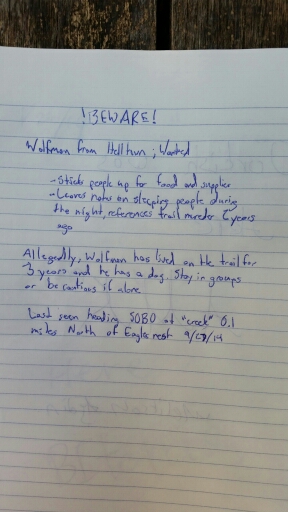 !BEWARE!
Wolfman from Hellhun ; Wanted
- Sticks people up for food and supplies
- Leaves notes on sleeping people during
the night, references trail murder 6 years
ago
Allegedly, Wolfman has lived on the trail for
3 years and he has a dog. Stay in groups
or be cautious if alone
Last seen heading SOBO at "creek" 0.1
miles North of Eagles nest 9/ /14